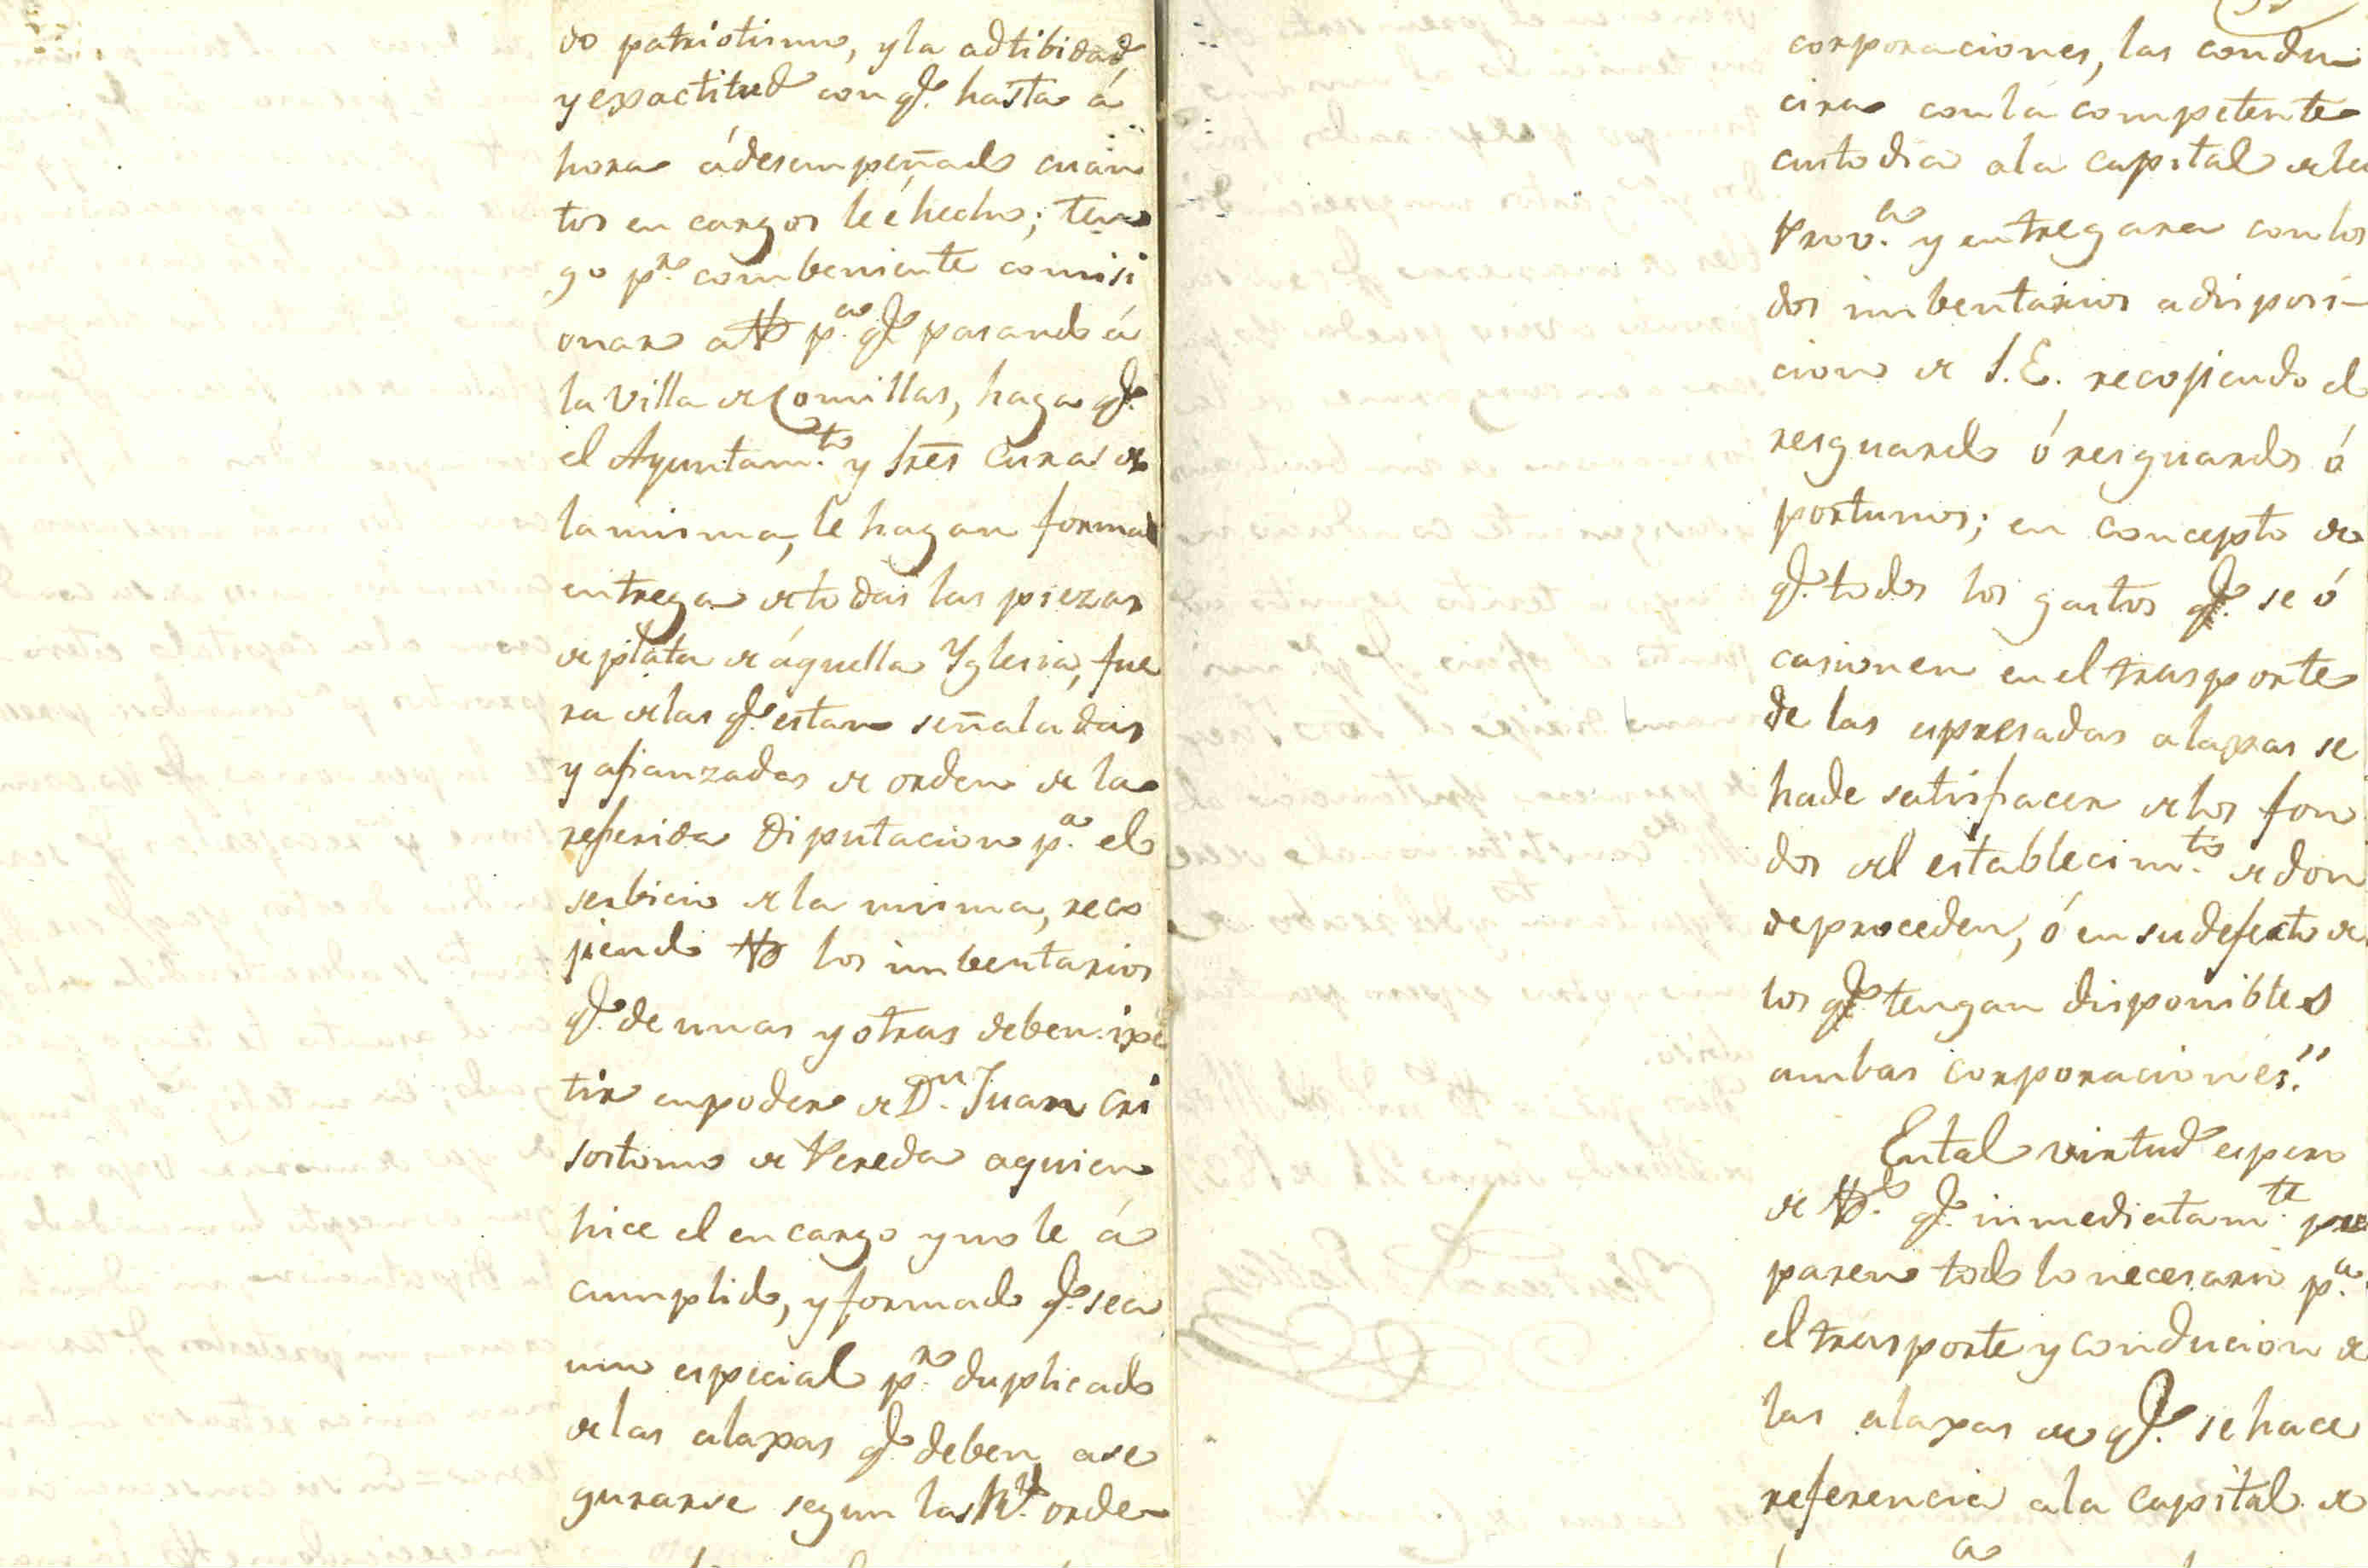 do patriotismo, y la adtibidad,
y expactitud con qe. hasta á
hora á desempeñado cuan
tos en cargos le é hecho; ten
go pr. combeniente comisi
onar a V pa. qe. pasando á
la Villa de Comillas, haga qe.
el Ayuntamto. y Sres Curas de
la misma, le hagan formal
entrega de todas las piezas
de plata de áquella Yglesia, fue
ra de las qe. estan señaladas
y afianzadas de orden de la
referida Diputacion pa. el
serbicio de la misma, reco
jiendo V los imbentarios
qe. de unas y otras deben ipc
tir en poder de Dn. Juan Cri
sostomo de Vereda a quien
hice el encargo y no le á
cumplido, y formado qe. sea
uno especial pr. duplicado
de las alaxas qe. deben ase
gurarse segun las Rs. orde-
corporaciones, las condu
cira con la competente
custodia a la capital de la
Prova. y entregara con los
dos imbentarios a disposi-
cion de S.E. recojiendo el
resguardo ó resguardos ó
portunos; en concepto de
qe. todos los gastos qe. se ó
casionen en el trasporte
de las espresadas alaxas se
ha de satisfacer de los fon
dos del establecimto. de don
de proceden, ó en su defecto de
los qe. tengan disponibles
ambas corporaciones."
En tal virtud espero
de Vs. qe. inmediatamte. pre
paren todo lo necesario pa.
el trasporte y conducion de
las alaxas de qe. se hace
referencia a la capital de